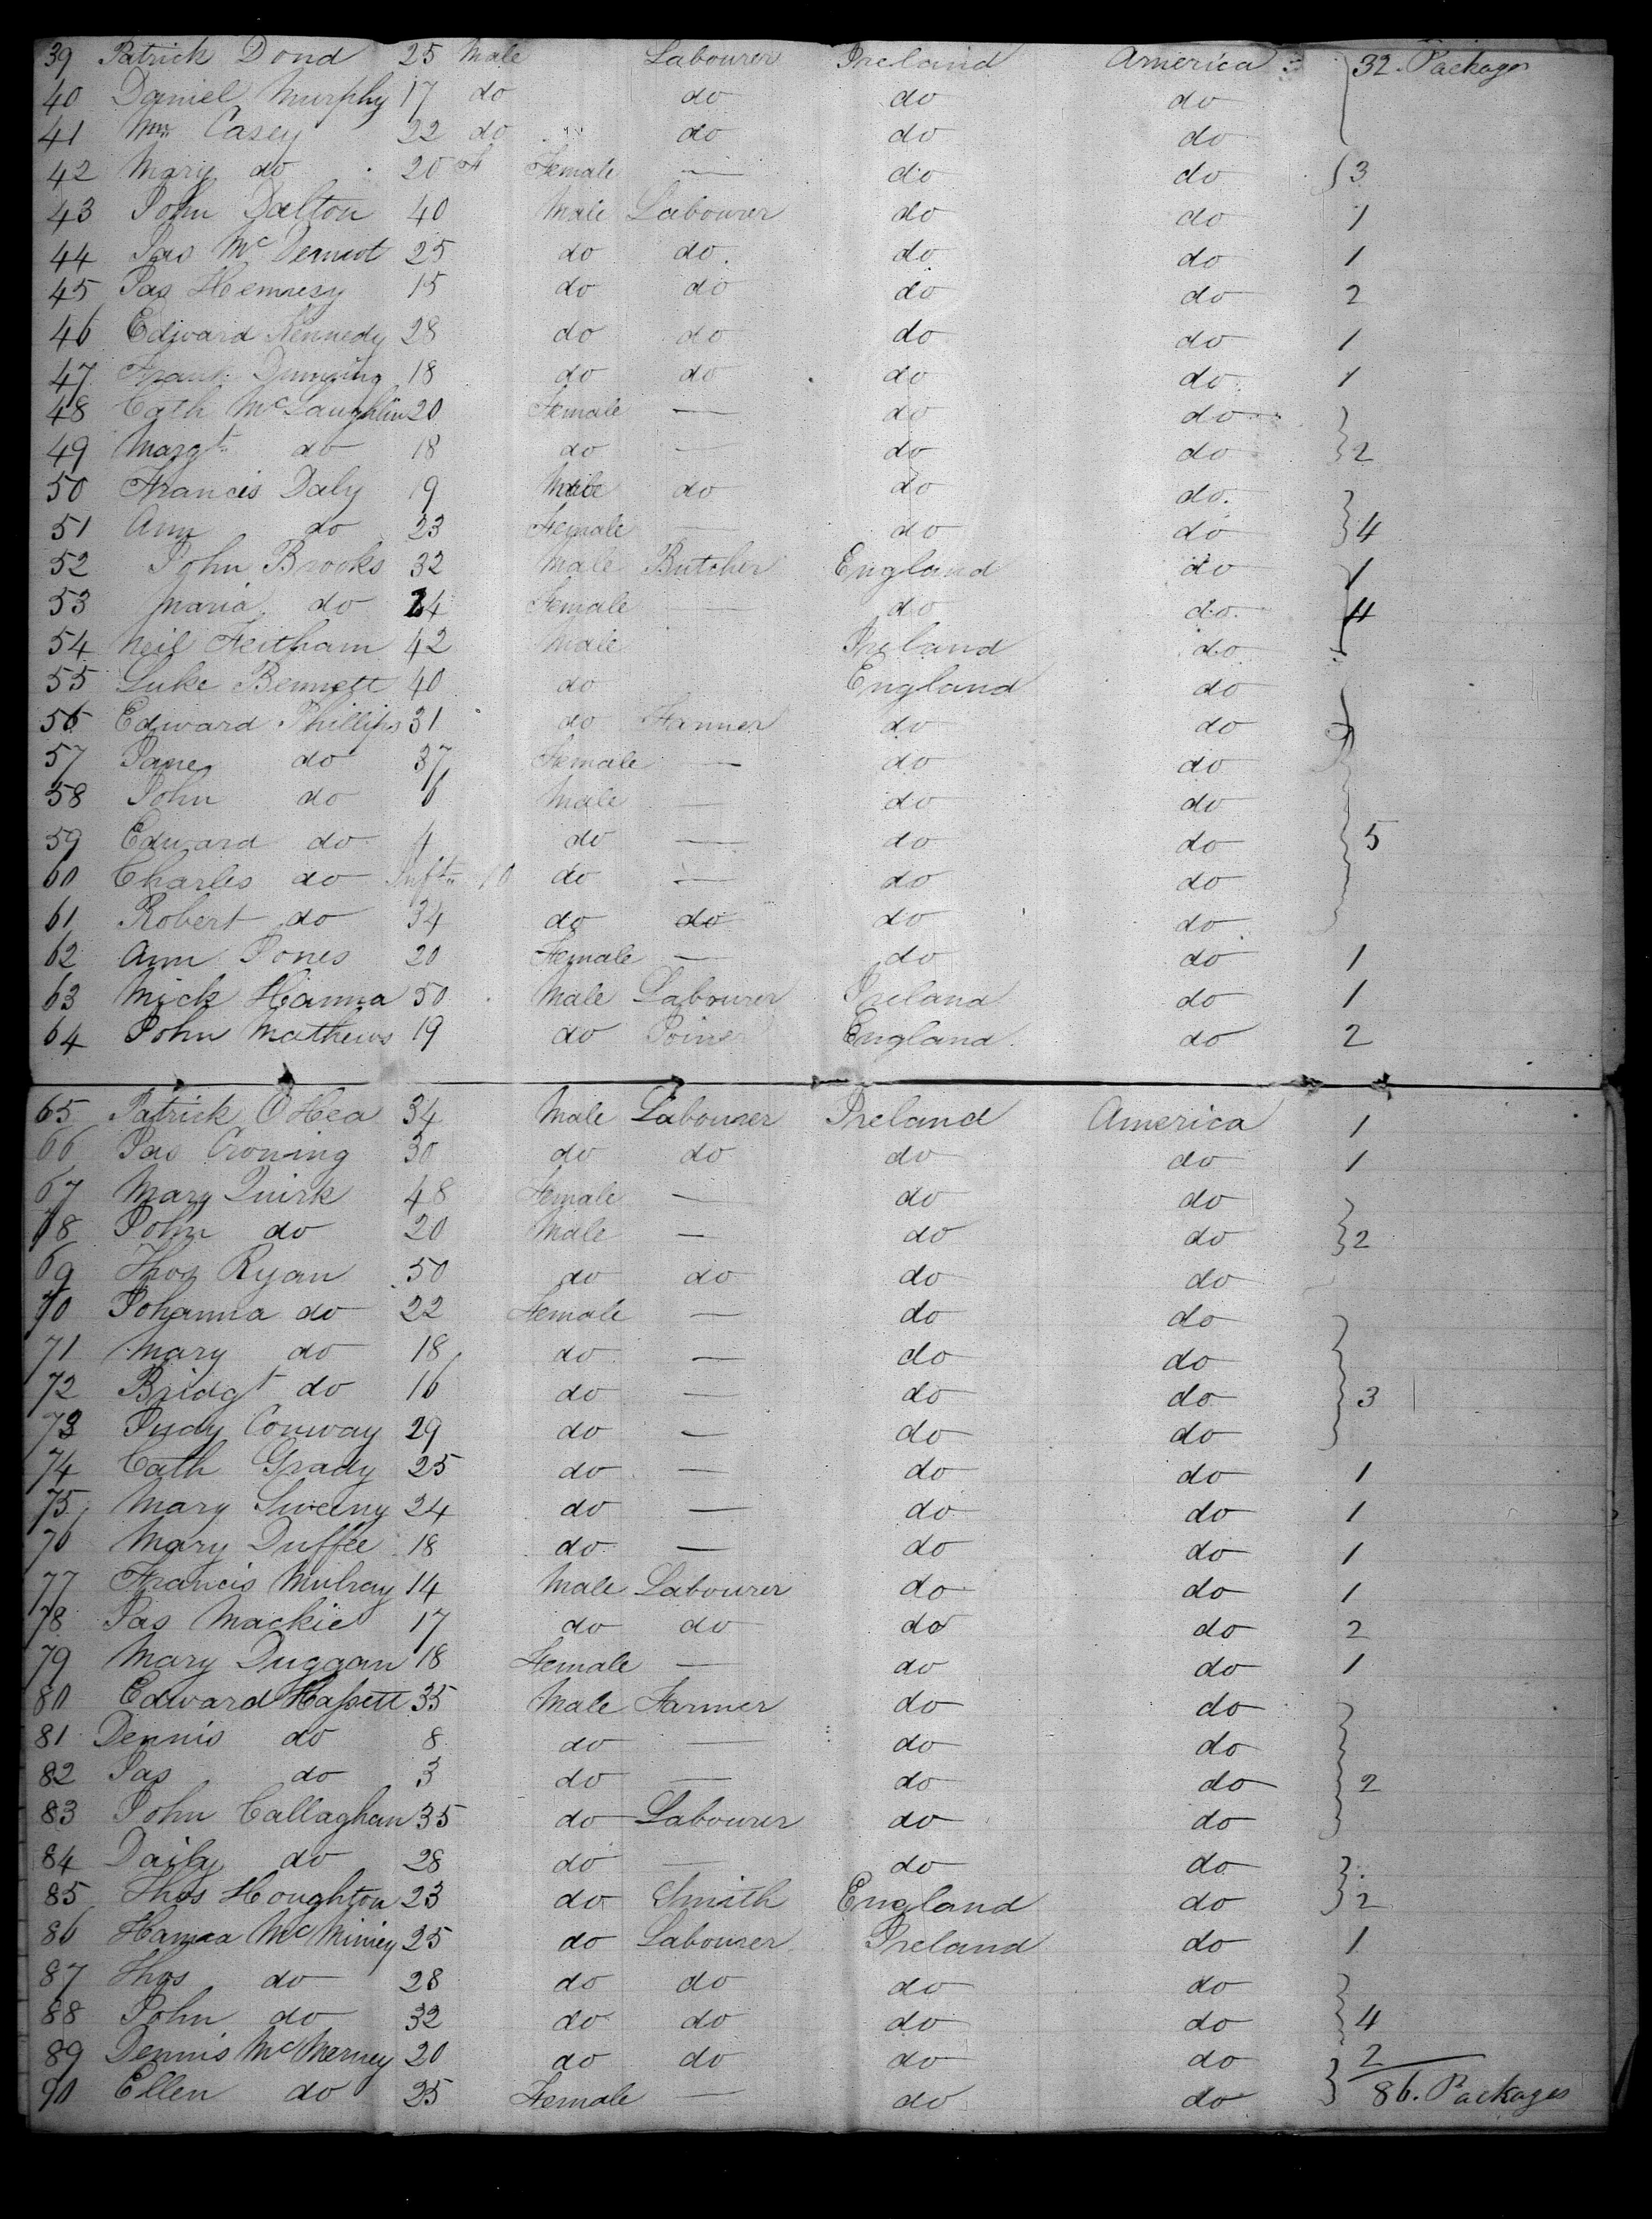 39 Patrick Dond 25 Male Labourer Ireland America 32. Packages
40 Daniel Murphy 17 do do do do
41 Wm Casey 22 do do do do
42 Mary do 20 F Female — do do 3
43 John Dalton 40 Male Labourer do do 1
44 Jas McDermot 25 do do. do do 1
45 Jas Hennesy 15 do do do do 2
46 Edward Kennedy 28 do do do do 1
47 18 do do do do 1
48 Cath McLaughlin 20 Female — do do
49 Margt do 18 do — do do 2
50 Francis Daly 19 Male do do do.
51 Ann do 23 Female — do do 4
52 John Brooks 32 Male Butcher England do 1
53 Maria do 24 Female — do do. 4
54 Neil Feitham 42 Male Ireland do
55 Luke Bennett 40 do England do
56 Edward Phillips 31 do Farmer do do
57 Jane do 37 Female — do do
58 John do 6 Male — do do
59 Edward do 4 do — do do 5
60 Charles do Inft 10 do — do do
61 Robert do 34 do do do do
62 Ann Jones 20 Female — do do 1
63 Mick Hanna 50 Male Labourer Ireland do 1
64 John Mathews 19 do Joiner England do 2
65 Patrick O'Hea 34 Male Labourer Ireland America 1
66 Jas Croning 30 do do do do 1
67 Mary Quirk 48 Female — do do
68 John do 20 Male — do do 2
69 Thos Ryan 50 do do do do
70 Johanna do 22 Female — do do
71 Mary do 18 do — do do
72 Bridgt do 16 do — do do 3
73 Judy Conway 29 do — do do
74 Cath Grady 25 do — do do 1
75 Mary Sweeny 24 do — do do 1
76 Mary Duffee 18 do — do do 1
77 Francis Mulray 14 Male Labourer do do 1
78 Jas Mackie 17 do do do do 2
79 Mary Duggan 18 Female — do do 1
80 Edward Hassett 35 Male Farmer do do
81 Dennis do 8 do — do do
82 Jas do 3 do — do do 2
83 John Callaghan 35 do Labourer do do
84 Daily do 28 do — do do
85 Thos Houghton 23 do Smith England do 2
86 Hanna 25 do Labourer Ireland do 1
87 Thos do 28 do do do do
88 John do 32 do do do do 4
89 Dennis McNerney 20 do do do do 2
90 Ellen do 25 Female — do do 86. Packages